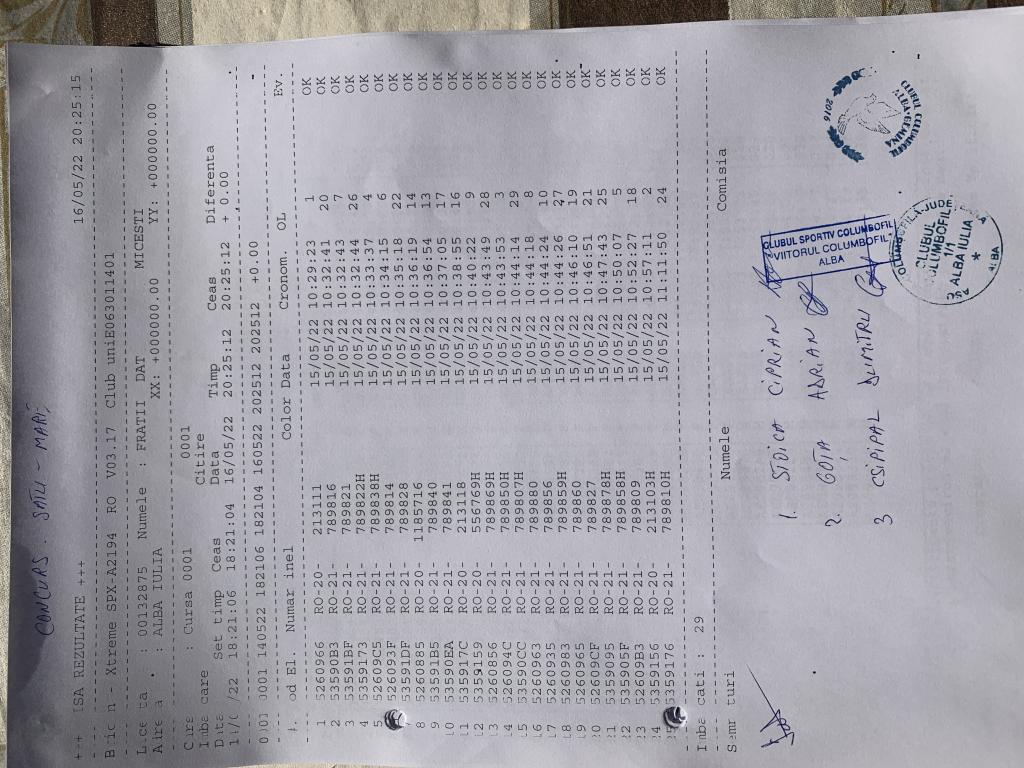 CONCURS : SATU-MARE
+++ ISA REZULTATE +++ 16/05/22 20:25:15
Xtreme SPX-A2194 RO V03.17 Club uniE063011401
: 00132875 Numele : FRATII DAT MICESTI
: ALBA IULIA XX: +000000.00 YY: +000000.00
: Cursa 0001 0001
care Citire
Set timp Ceas Data Timp Ceas Diferenta
/22 18:21:06 18:21:04 16/05/22 20:25:12 20:25:12 + 0.00
0001 140522 182106 182104 160522 202512 202512 +0.00
El. Numar inel Color Data Cronom. OL Ev.
1 5260966 RO-20- 213111 15/05/22 10:29:23 1 OK
2 53590B3 RO-21- 789816 15/05/22 10:32:41 20 OK
3 53591BF RO-21- 789821 15/05/22 10:32:43 7 OK
4 5359173 RO-21- 789822H 15/05/22 10:32:44 26 OK
5 52609C5 RO-21- 789838H 15/05/22 10:33:37 4 OK
526093F RO-21- 789814 15/05/22 10:34:15 6 OK
53591DF RO-21- 789828 15/05/22 10:35:18 22 OK
8 5260885 RO-20- 1185716 15/05/22 10:36:19 14 OK
9 53591B5 RO-21- 789840 15/05/22 10:36:54 13 OK
10 53590EA RO-21- 789841 15/05/22 10:37:05 17 OK
11 535917C RO-20- 213118 15/05/22 10:38:55 16 OK
12 5354159 RO-20- 556769H 15/05/22 10:40:22 9 OK
13 5260856 RO-21- 789869H 15/05/22 10:43:49 28 OK
14 526094C RO-21- 789850H 15/05/22 10:43:53 3 OK
15 53590CC RO-21- 789807H 15/05/22 10:44:14 29 OK
16 5260963 RO-21- 789880 15/05/22 10:44:18 8 OK
17 5260935 RO-21- 789856 15/05/22 10:44:24 10 OK
18 5260983 RO-21- 789859H 15/05/22 10:44:26 27 OK
19 5260965 RO-21- 789860 15/05/22 10:46:10 19 OK
20 52609CF RO-21- 789827 15/05/22 10:46:51 21 OK
21 5359095 RO-21- 789878H 15/05/22 10:47:43 25 OK
22 535905F RO-21- 789858H 15/05/22 10:50:07 5 OK
23 52609B3 RO-21- 789809 15/05/22 10:52:27 18 OK
24 5359156 RO-20- 213103H 15/05/22 10:57:11 2 OK
25 5359176 RO-21- 789810H 15/05/22 11:11:50 24 OK
cati : 29
turi Numele Comisia
1. STOICA CIPRIAN
2. GOȚA ADRIAN
3 CSIPIPAL DUMITRU
CLUBUL SPORTIV COLUMBOFIL
"VIITORUL COLUMBOFIL"
ALBA
CLUBUL
COLUMBOFIL
1R
ALBA IULIA
CLUBUL COLUMBOFIL
ALBA GEMINA
2016